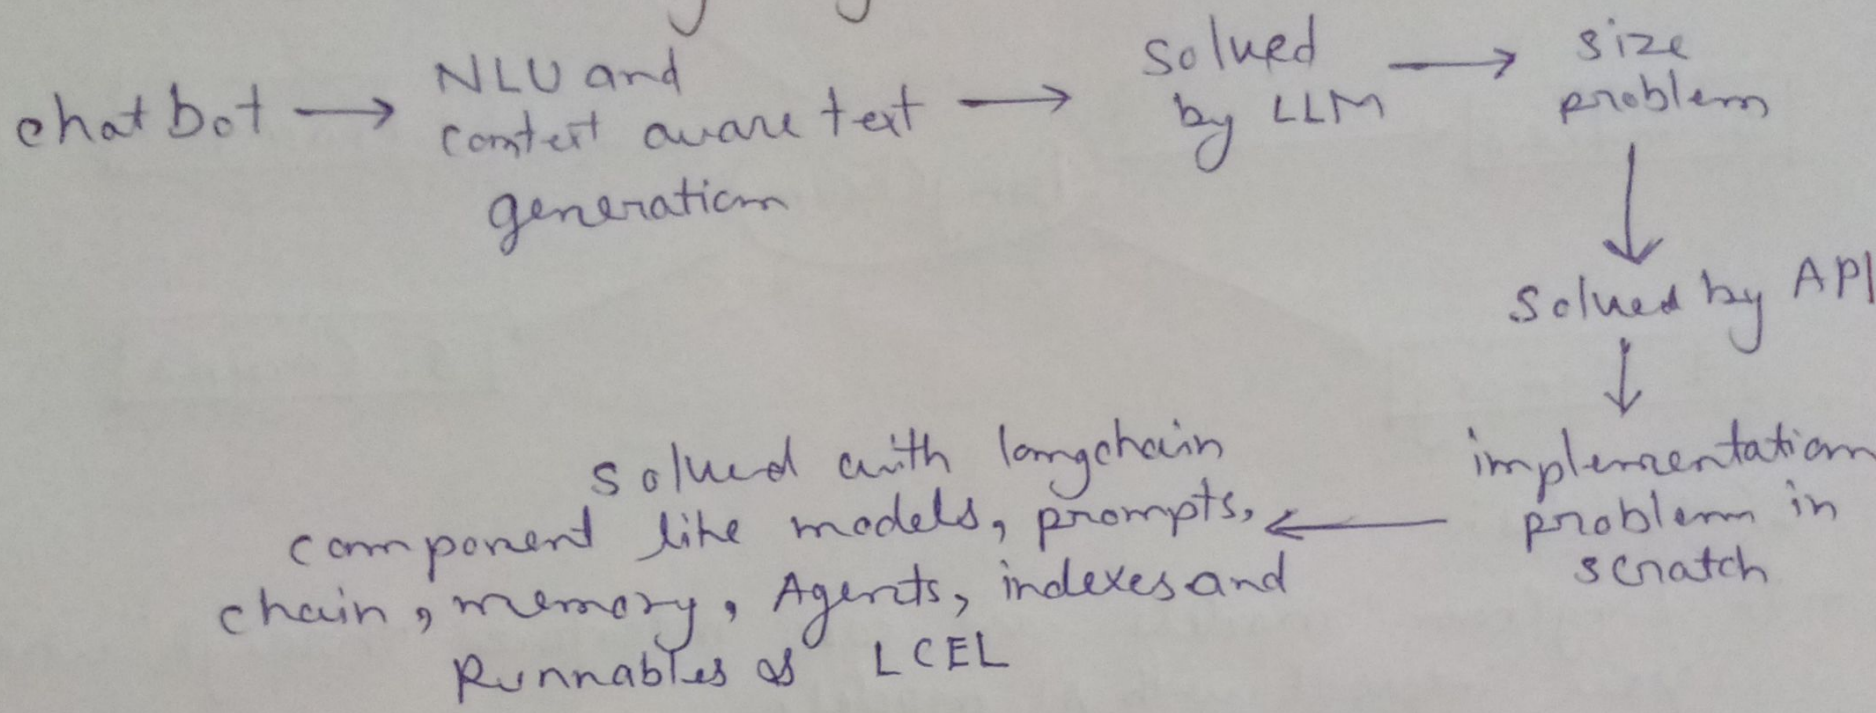 chatbot → NLU and
context aware text →
generation
solved
by LLM →
size
problem
↓
Solved by API
↓
implementation
problem in
scratch
←
solved with langchain
component like models, prompts,
chain, memory, Agents, indexes and
Runnables LCEL